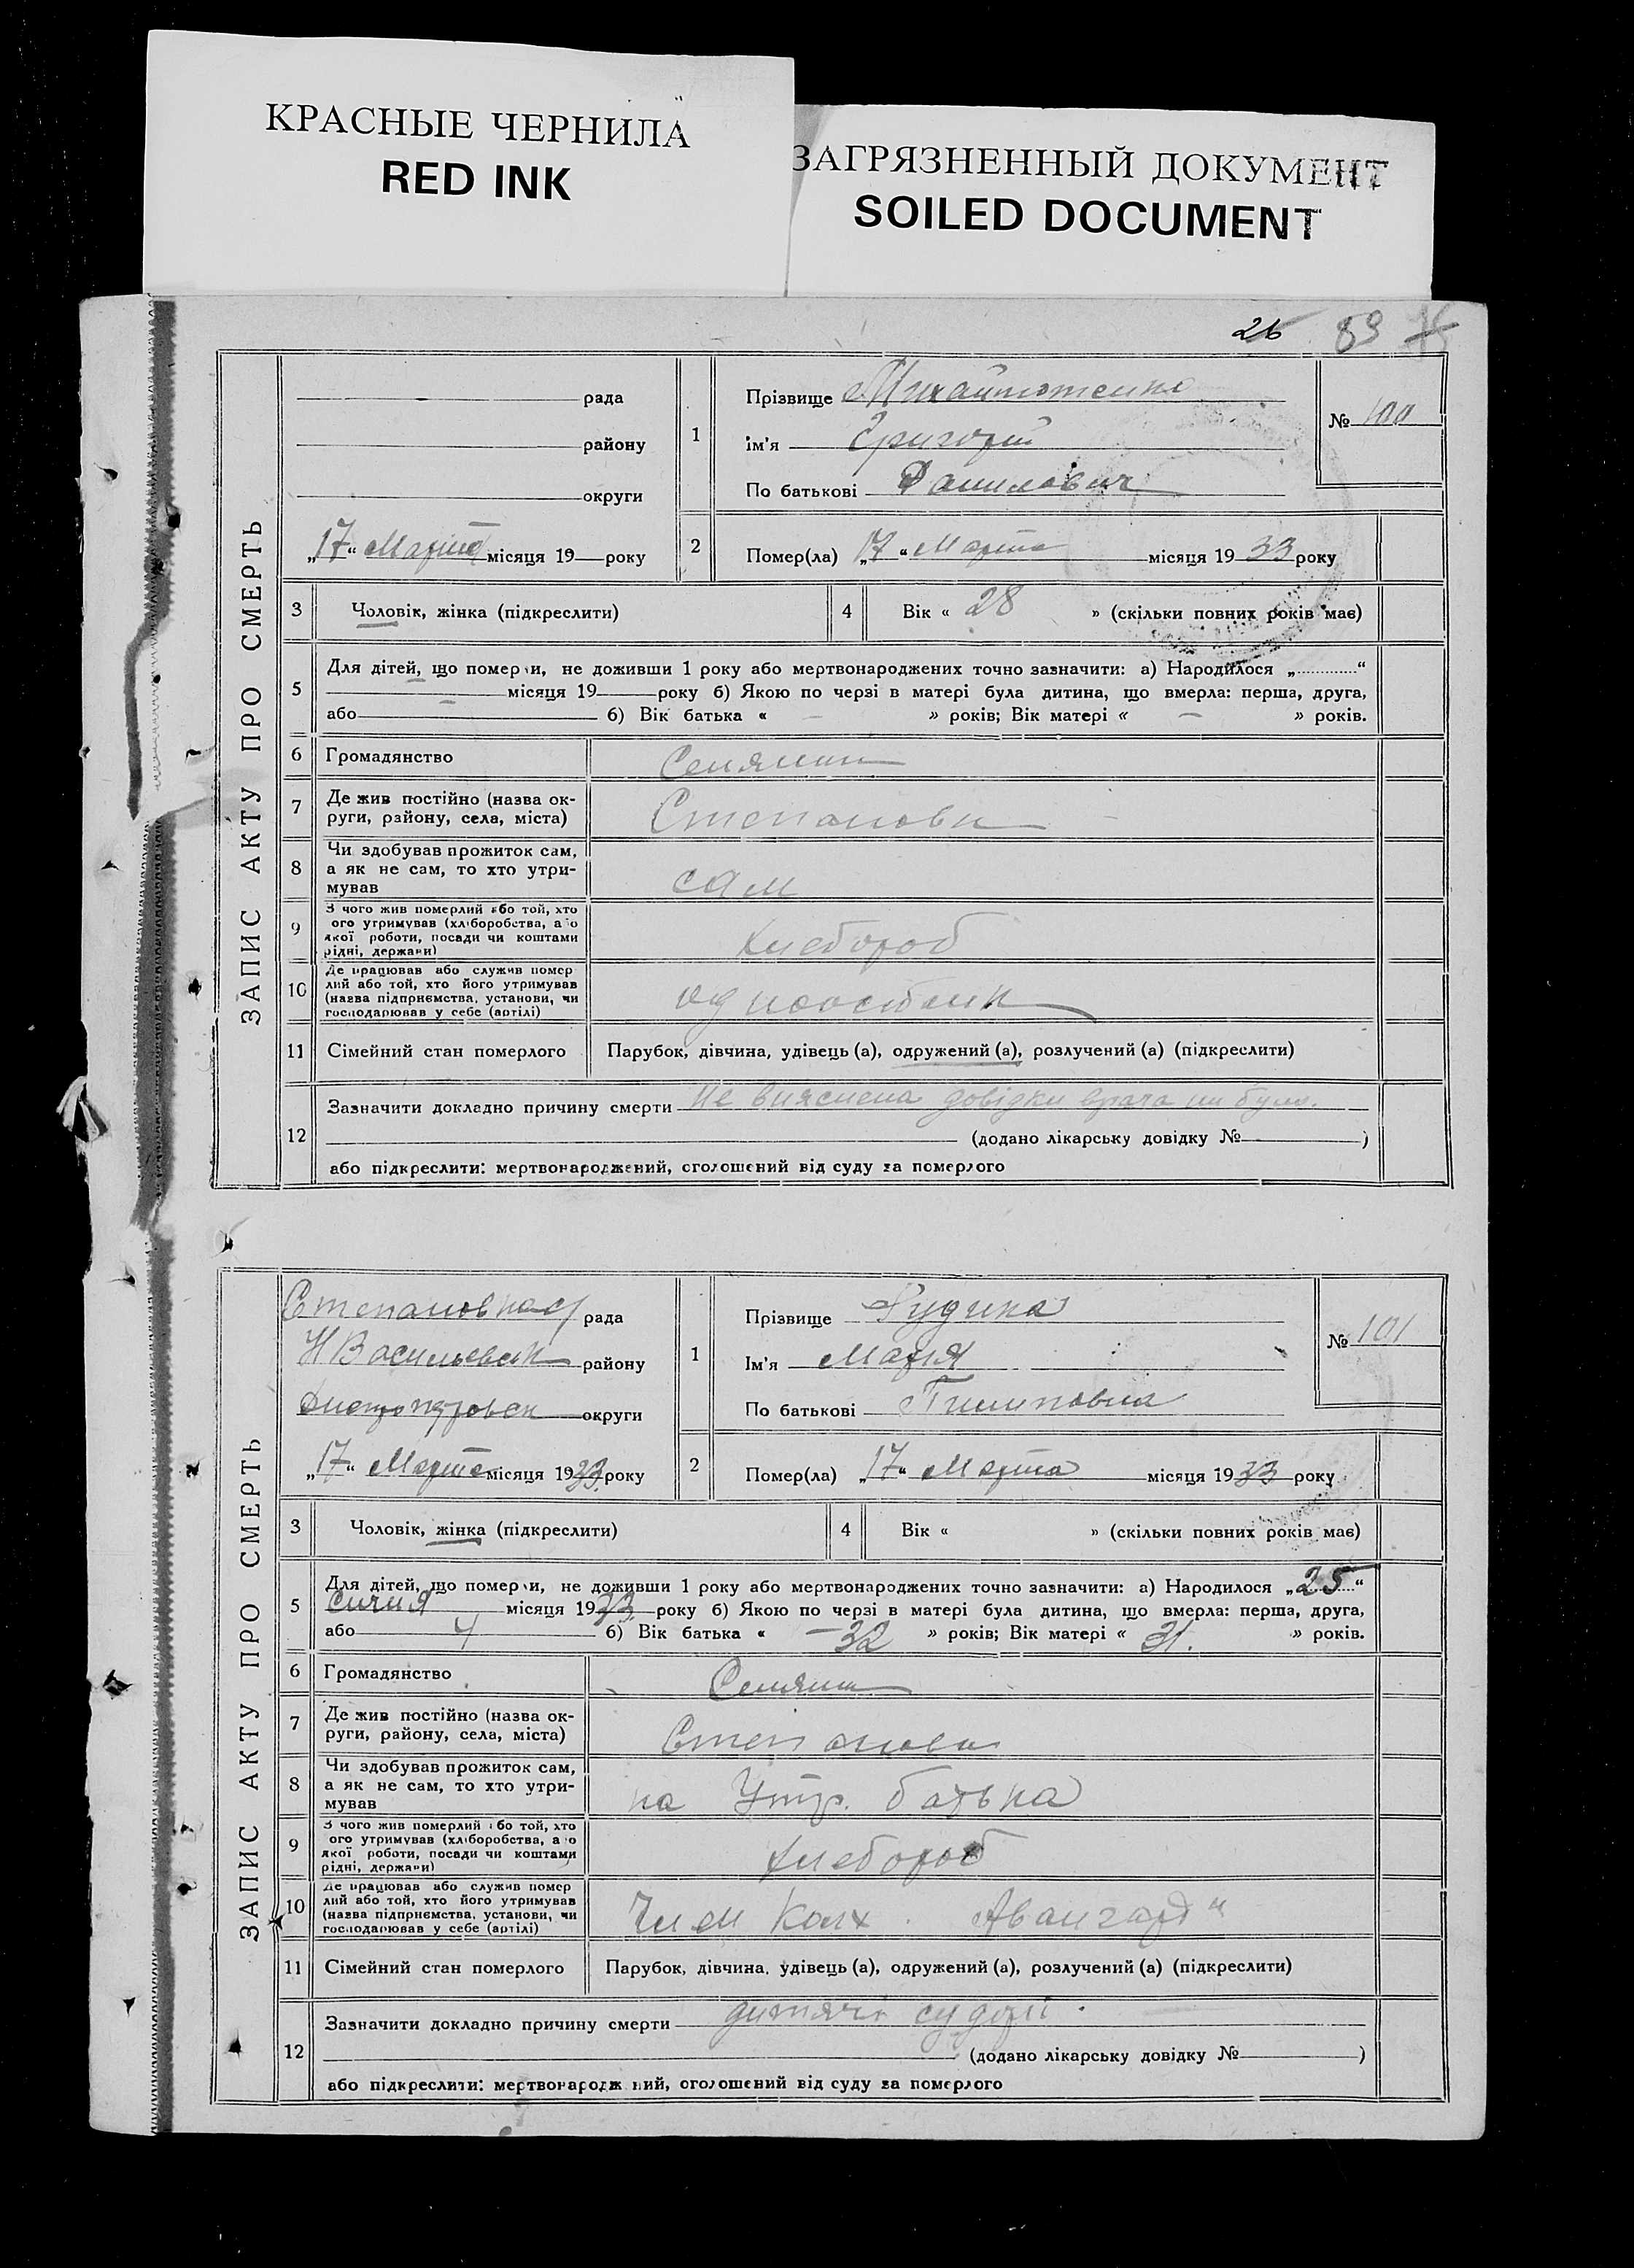 КРАСНЫЕ ЧЕРНИЛА
RED INK
ЗАГРЯЗНЕННЫЙ ДОКУМЕНТ
SOILED DOCUMENT
26 89
ЗАПИС АКТУ ПРО СМЕРТЬ
рада
району
округи
„17“ Марта місяця 19 року
1
Прізвище
Ім'я Григорій
По батькові Данилович
№ 100
2
Помер(ла) „17“ Марта місяця 1933 року
3 Чоловік, жінка (підкреслити)
4 Вік « 28 » (скільки повних років має)
5
Для дітей, що померли, не доживши 1 року або мертвонароджених точно зазначити: а) Народилося „ “
місяця 19 року б) Якою по черзі в матері була дитина, що вмерла: перша, друга,
або б) Вік батька « – » років; Вік матері « – » років.
6 Громадянство Селянин
7 Де жив постійно (назва ок-
руги, району, села, міста) Степановк
8 Чи здобував прожиток сам,
а як не сам, то хто утри-
мував
сам
9 З чого жив померлий або той, хто
ого утримував (хліборобства, або
якої роботи, посади чи коштами
рідні, держави)
хлебороб
10 Де працював або служив помер
лий або той, хто його утримував
(назва підприємства, установи, чи
господарював у себе (артілі)
одноосібник
11 Сімейний стан померлого Парубок, дівчина, удівець (а), одружений (а), розлучений (а) (підкреслити)
12
Зазначити докладно причину смерти не вияснена довідки врача ни було.
(додано лікарську довідку № )
або підкреслити: мертвонароджений, оголошений від суду за померлого
ЗАПИС АКТУ ПРО СМЕРТЬ
Степановка рада
Н Васильевск району
Днепропетровск округи
„17“ Марта місяця 1933 року
1
Прізвище Рудика
Ім'я Мария
По батькові Пилиповна
№ 101
2
Помер(ла) „17“ Марта місяця 1933 року
3 Чоловік, жінка (підкреслити)
4 Вік « » (скільки повних років має)
5
Для дітей, що померли, не доживши 1 року або мертвонароджених точно зазначити: а) Народилося „25“
Сичня місяця 1933 року б) Якою по черзі в матері була дитина, що вмерла: перша, друга,
або 4 б) Вік батька « 32 » років; Вік матері « 31. » років.
6 Громадянство Селянин
7 Де жив постійно (назва ок-
руги, району, села, міста) Степановк
8 Чи здобував прожиток сам,
а як не сам, то хто утри-
мував
на Утр. батька
9 З чого жив померлий або той, хто
ого утримував (хліборобства, або
якої роботи, посади чи коштами
рідні, держави)
хлебороб
10 Де працював або служив помер
лий або той, хто його утримував
(назва підприємства, установи, чи
господарював у себе (артілі)
Член Колх. Авангард“
11 Сімейний стан померлого Парубок, дівчина, удівець (а), одружений (а), розлучений (а) (підкреслити)
12
Зазначити докладно причину смерти дитячі судорі.
(додано лікарську довідку № )
або підкреслити: мертвонароджений, оголошений від суду за померлого